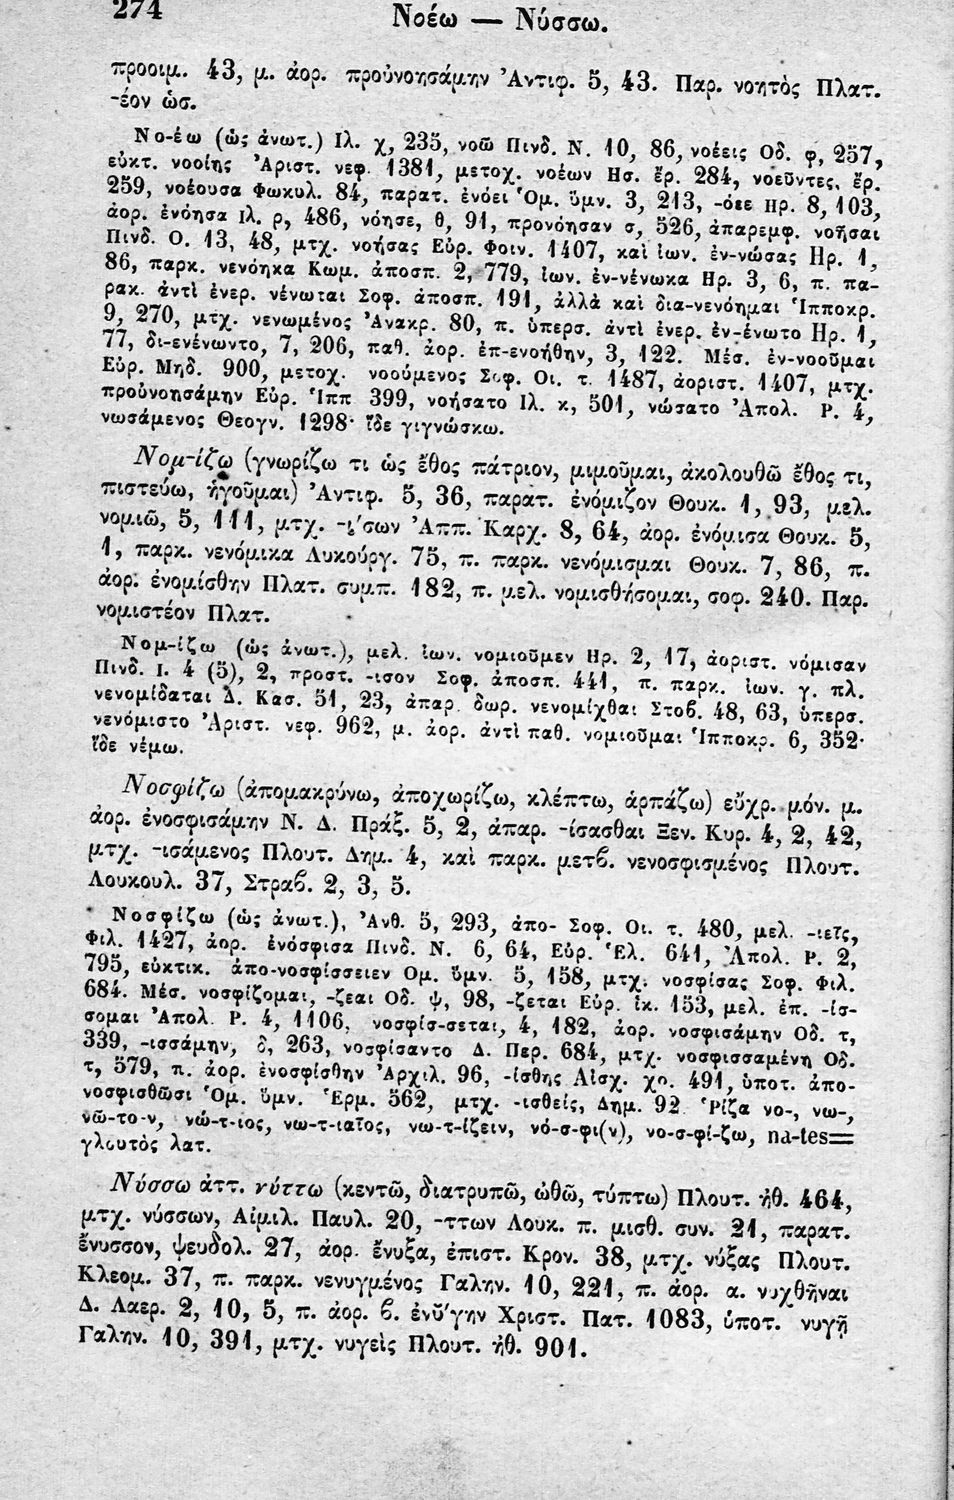 274
Νοέω — Νύσσω.
προοιμ. 43, μ. ἀορ. προὐνοησάμην Ἀντιφ. 5, 43. Παρ. νοητὸς Πλατ.
-έον ὡσ.
Νο-έω (ὡς ἀνωτ.) Ιλ. χ, 235, νοῶ Πινδ. Ν. 10, 86, νοέεις Οδ. φ, 257,
εὐκτ. νοοίης Ἀριστ. νεφ. 1381, μετοχ. νοέων Ησ. ἔρ. 284, νοεῦντες, ἔρ.
259, νοέουσα Φωκυλ. 84, παρατ. ἐνόει Ὁμ. ὕμν. 3, 213, -όεε Ηρ. 8, 103,
ἀορ. ἐνόησα Ιλ. ρ, 486, νόησε, θ, 91, προνόησαν σ, 526, ἀπαρεμφ. νοῆσαι
Πινδ. Ο. 13, 48, μτχ. νοήσας Εὐρ. Φοιν. 1407, καὶ ἰων. ἐν-νώσας Ηρ. 1,
86, παρκ. νενόηκα Κωμ. ἀποσπ. 2, 779, ἰων. ἐν-νένωκα Ηρ. 3, 6, π. πα-
ρακ. ἀντὶ ἐνερ. νένωται Σοφ. ἀποσπ. 191, ἀλλὰ καὶ δια-νενόημαι Ἱπποκρ.
9, 270, μτχ. νενωμένος Ἀνακρ. 80, π. ὑπερσ. ἀντὶ ἐνερ. ἐν-ένωτο Ηρ. 1,
77, δι-ενένωντο, 7, 206, παθ. ἀορ. ἐπ-ενοήθην, 3, 122. Μέσ. ἐν-νοοῦμαι
Εὐρ. Μηδ. 900, μετοχ. νοούμενος Σοφ. Οι. τ. 1487, ἀοριστ. 1407, μτχ.
προὐνοησάμην Εὐρ. Ἱππ 399, νοήσατο Ιλ. κ, 501, νώσατο Ἀπολ. Ρ. 4,
νωσάμενος Θεογν. 1298· ἴδε γιγνώσκω.
Νομ-ίζω (γνωρίζω τι ὡς ἔθος πάτριον, μιμοῦμαι, ἀκολουθῶ ἔθος τι,
πιστεύω, ἡγοῦμαι) Ἀντιφ. 5, 36, παρατ. ἐνόμιζον Θουκ. 1, 93, μελ.
νομιῶ, 5, 111, μτχ. -ίσων Ἀππ. Καρχ. 8, 64, ἀορ. ἐνόμισα Θουκ. 5,
1, παρκ. νενόμικα Λυκούργ. 75, π. παρκ. νενόμισμαι Θουκ. 7, 86, π.
ἀορ. ἐνομίσθην Πλατ. συμπ. 182, π. μελ. νομισθήσομαι, σοφ. 240. Παρ.
νομιστέον Πλατ.
Νομ-ίζω (ὡς ἀνωτ.), μελ. ἰων. νομιοῦμεν Ηρ. 2, 17, ἀοριστ. νόμισαν
Πινδ. Ι. 4 (5), 2, προστ. -ισον Σοφ. ἀποσπ. 441, π. παρκ. ἰων. γ. πλ.
νενομίδαται Δ. Κασ. 51, 23, ἀπαρ. δωρ. νενομίχθαι Στοϐ. 48, 63, ὑπερσ.
νενόμιστο Ἀριστ. νεφ. 962, μ. ἀορ. ἀντὶ παθ. νομιοῦμαι Ἱπποκρ. 6, 352·
ἴδε νέμω.
Νοσφίζω (ἀπομακρύνω, ἀποχωρίζω, κλέπτω, ἁρπάζω) εὔχρ. μόν. μ.
ἀορ. ἐνοσφισάμην Ν. Δ. Πράξ. 5, 2, ἀπαρ. -ίσασθαι Ξεν. Κυρ. 4, 2, 42,
μτχ. -ισάμενος Πλουτ. Δημ. 4, καὶ παρκ. μετϐ. νενοσφισμένος Πλουτ.
Λουκουλ. 37, Στραϐ. 2, 3, 5.
Νοσφίζω (ὡς ἀνωτ.), Ἀνθ. 5, 293, ἀπο- Σοφ. Οι. τ. 480, μελ. -ιεῖς,
Φιλ. 1427, ἀορ. ἐνόσφισα Πινδ. Ν. 6, 64, Εὐρ. Ἑλ. 641, Ἀπολ. Ρ. 2,
795, εὐκτικ. ἀπο-νοσφίσσειεν Ομ. ὕμν. 5, 158, μτχ. νοσφίσας Σοφ. Φιλ.
684. Μέσ. νοσφίζομαι, -ζεαι Οδ. ψ, 98, -ζεται Εὐρ. ἱκ. 153, μελ. ἐπ. -ίσ-
σομαι Ἀπολ. Ρ. 4, 1106, νοσφίσ-σεται, 4, 182, ἀορ. νοσφισάμην Οδ. τ,
339, -ισσάμην, δ, 263, νοσφίσαντο Δ. Περ. 684, μτχ. νοσφισσαμένη Οδ.
τ, 579, π. ἀορ. ἐνοσφίσθην Ἀρχιλ. 96, -ίσθης Αἰσχ. χο. 491, ὑποτ. ἀπο-
νοσφισθῶσι Ὁμ. ὕμν. Ἑρμ. 562, μτχ. -ισθείς, Δημ. 92. Ῥίζα νο-, νω-,
νῶ-το-ν, νώ-τ-ιος, νω-τ-ιαῖος, νω-τ-ίζειν, νό-σ-φι(ν), νο-σ-φί-ζω, na-tes=
γλουτὸς λατ.
Νύσσω ἀττ. νύττω (κεντῶ, διατρυπῶ, ὠθῶ, τύπτω) Πλουτ. ἠθ. 464,
μτχ. νύσσων, Αἰμιλ. Παυλ. 20, -ττων Λουκ. π. μισθ. συν. 21, παρατ.
ἔνυσσον, ψευδολ. 27, ἀορ. ἔνυξα, ἐπιστ. Κρον. 38, μτχ. νύξας Πλουτ.
Κλεομ. 37, π. παρκ. νενυγμένος Γαλην. 10, 221, π. ἀορ. α. νυχθῆναι
Δ. Λαερ. 2, 10, 5, π. ἀορ. ϐ. ἐνύγην Χριστ. Πατ. 1083, ὑποτ. νυγῇ
Γαλην. 10, 391, μτχ. νυγεὶς Πλουτ. ἠθ. 901.